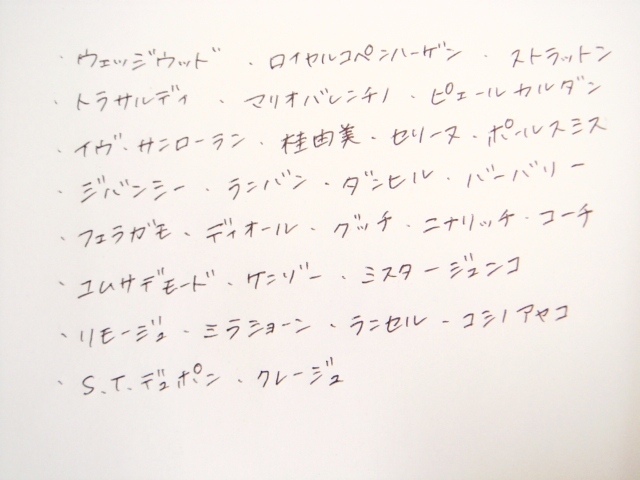 ・ウェッジウッド ・ロイヤルコペンハーゲン ・ストラットン
・トラサルディ ・マリオバレンチノ・ピエールカルダン
・イヴ・サンローラン・桂由美・セリーヌ・ポールスミス
・ジバンシー・ランバン・ダンヒル・バーバリー
・フェラガモ・ディオール・グッチ・ニナリッチ・コーチ
・コムサデモード・ケンゾー・ミスタージュンコ
・リモージュ・ミラショーン・ランセル・コシノアヤコ
・S.T.デュポン・クレージュ